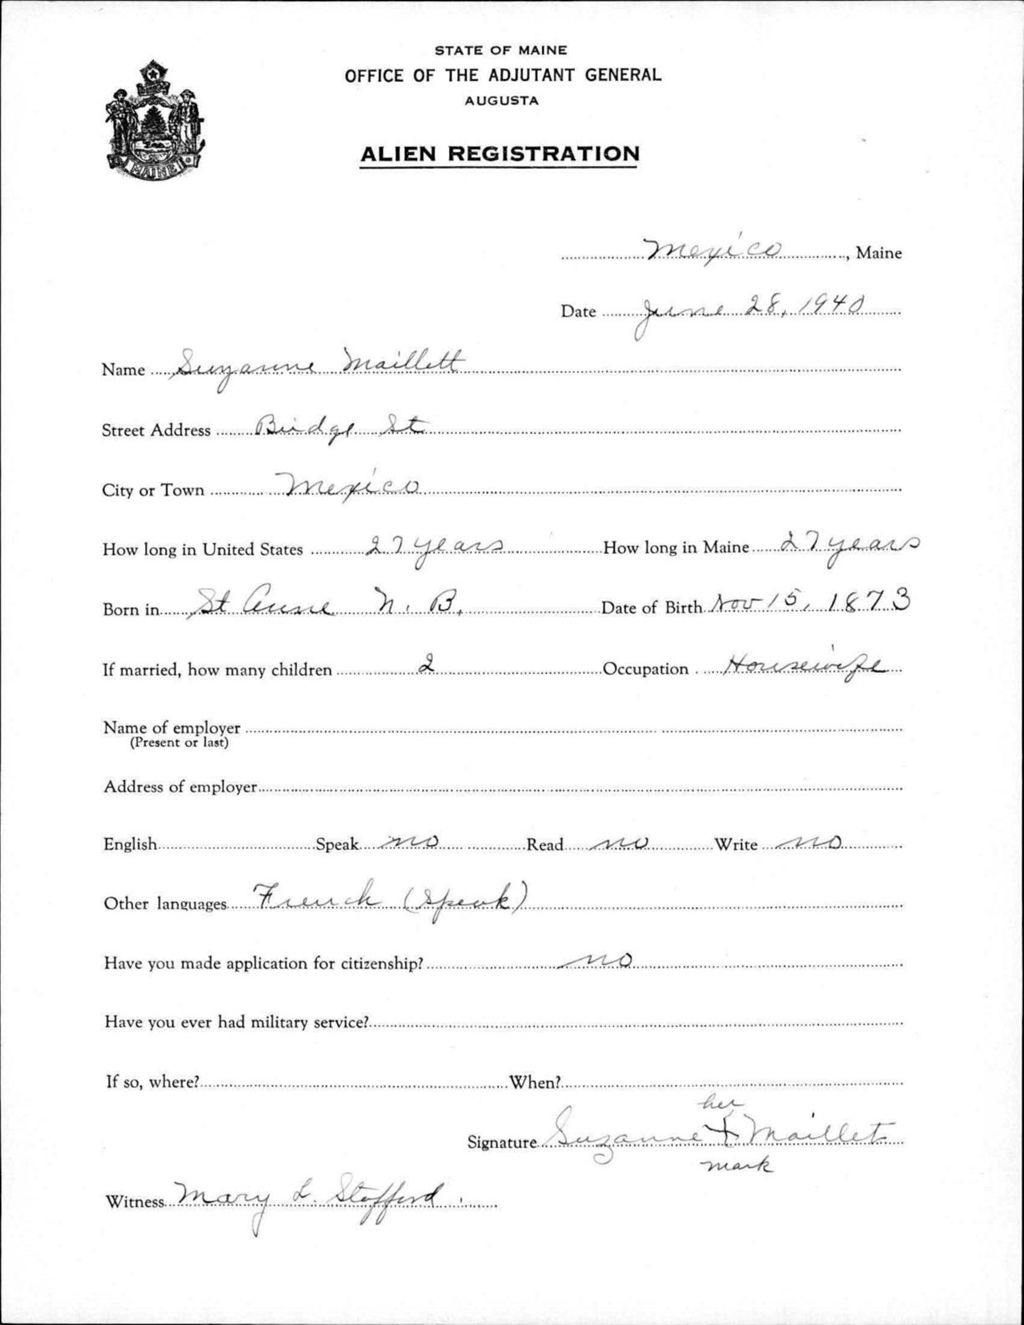 STATE OF MAINE
OFFICE OF THE ADJUTANT GENERAL
AUGUSTA
ALIEN REGISTRATION
MAINE
Mexico, Maine
Date June 28, 1940
Name Suzanne Maillett
Street Address Bridge St
City or Town Mexico
How long in United States 27 years How long in Maine 27 years
Born in St Anne N. B. Date of Birth Nov 15, 1873
If married, how many children 2 Occupation Housewife
Name of employer
(Present or last)
Address of employer
English Speak no Read no Write no
Other languages French (Speak)
Have you made application for citizenship? no
Have you ever had military service?
If so, where? When?
her
Signature Suzanne X Maillet
mark
Witness Mary L. Stafford